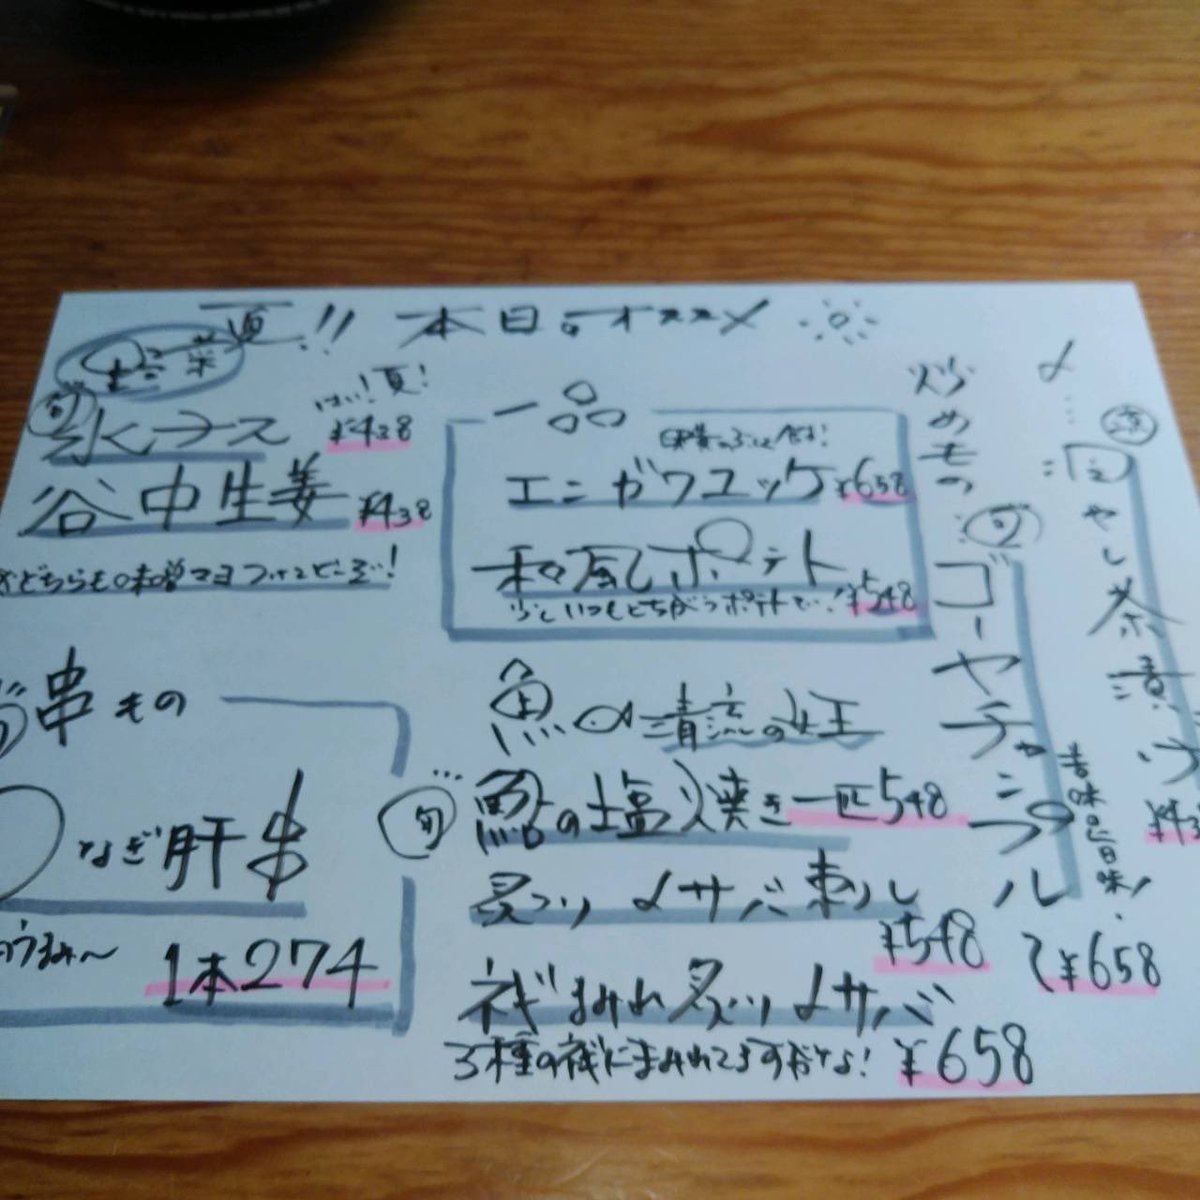 夏!! 本日のオススメ
旬
水ナス ¥438
はい!夏!
谷中生姜 ¥438
どちらも味噌マヨつけてどうぞ!
串もの
なぎ肝串
1本274
一品
エンガワユッケ ¥658
和風ポテト ¥548
少といつもとちがうポテトで!
魚 清流の女王
旬
鮎の塩焼き 一匹548
炙り〆サバ刺し
¥548
ねぎまみれ炙り〆サバ
3種のねぎにまみれてますがな! ¥658
炒めもの
旬
ゴーヤチャンプル
苦味旨味!
¥658
〆
冷やし茶漬け